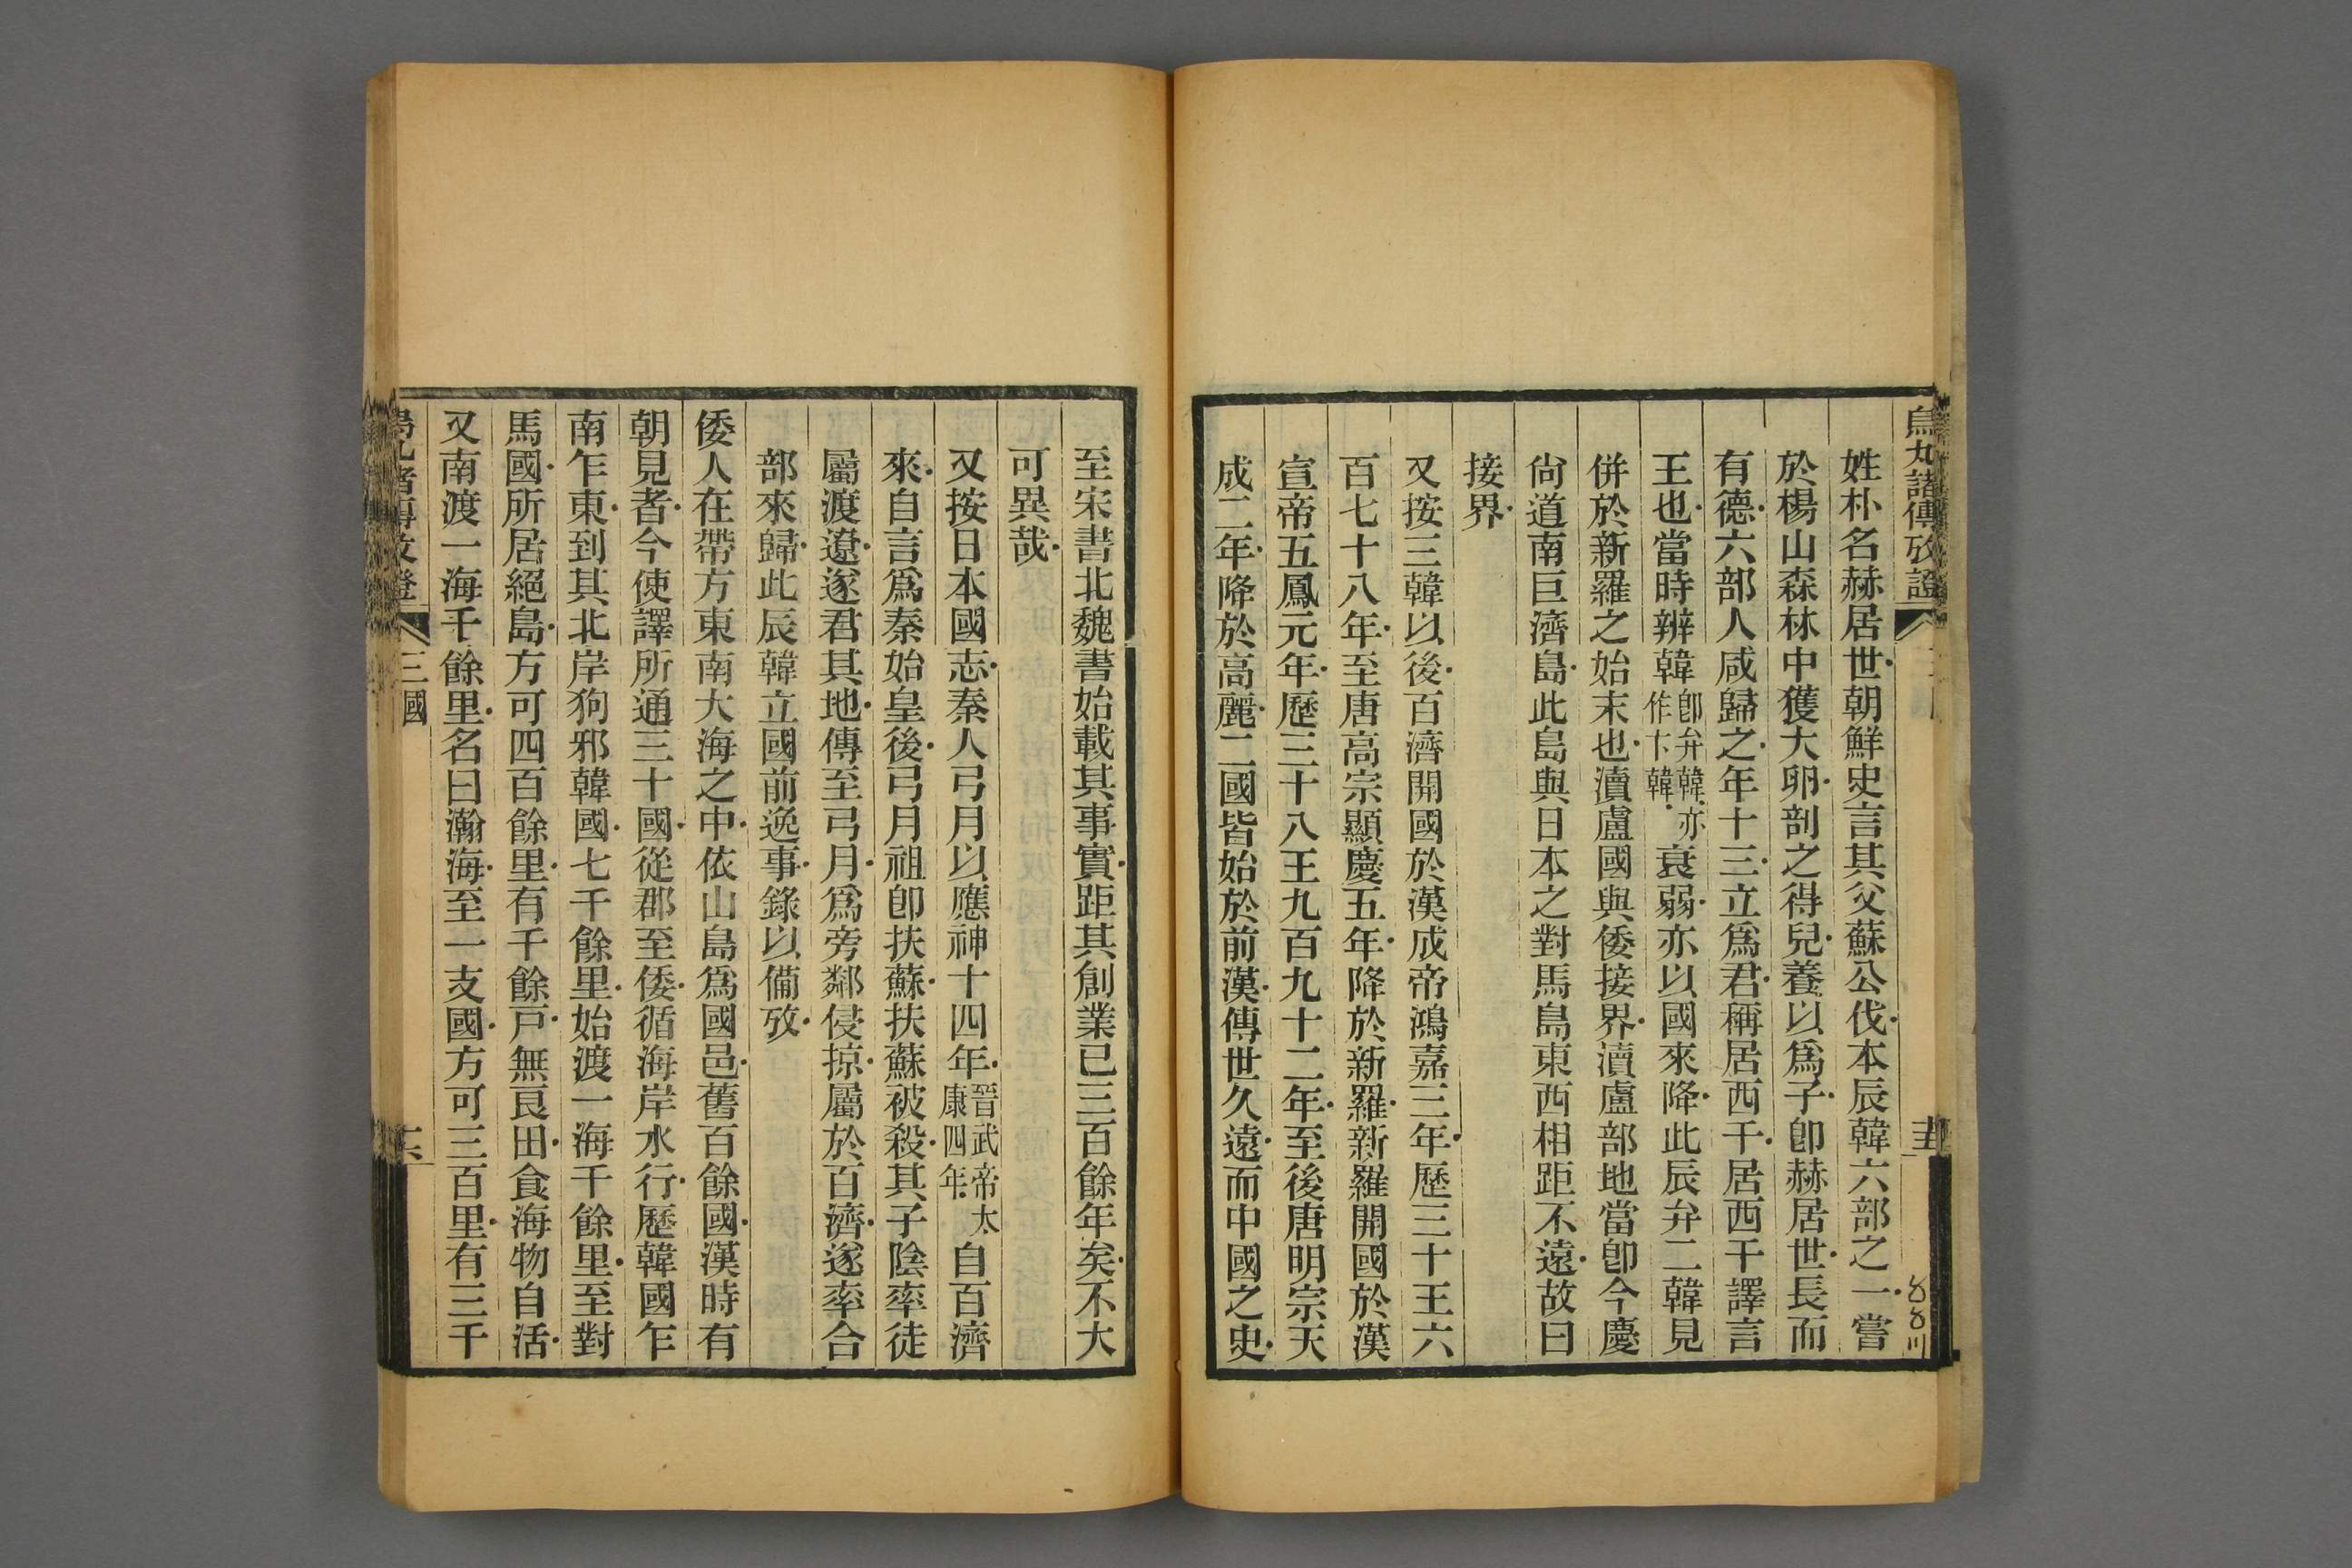 烏丸諸傳攷證
姓朴名赫居世朝鮮史言其父蘇公伐本辰韓六部之一嘗
於楊山森林中獲大卵剖之得兒養以爲子卽赫居世長而
有德六部人咸歸之年十三立爲君稱居西干居西干譯言
王也當時辨韓卽弁韓亦作卞韓衰弱亦以國來降此辰弁二韓見
併於新羅之始末也瀆盧國與倭接界瀆盧部地當卽今慶
尙道南巨濟島此島與日本之對馬島東西相距不遠故曰
接界
又按三韓以後百濟開國於漢成帝鴻嘉三年歷三十王六
百七十八年至唐高宗顯慶五年降於新羅新羅開國於漢
宣帝五鳳元年歷三十八王九百九十二年至後唐明宗天
成二年降於高麗二國皆始於前漢傳世久遠而中國之史
至宋書北魏書始載其事實距其創業已三百餘年矣不大
可異哉
又按日本國志秦人弓月以應神十四年晉武帝太康四年自百濟
來自言爲秦始皇後弓月祖卽扶蘇扶蘇被殺其子陰率徒
屬渡遼遂君其地傳至弓月爲旁鄰侵掠屬於百濟遂率合
部來歸此辰韓立國前逸事錄以備攷
倭人在帶方東南大海之中依山島爲國邑舊百餘國漢時有
朝見者今使譯所通三十國從郡至倭循海岸水行歷韓國乍
南乍東到其北岸狗邪韓國七千餘里始渡一海千餘里至對
馬國所居絕島方可四百餘里有千餘戶無良田食海物自活
又南渡一海千餘里名曰瀚海至一支國方可三百里有三千
三國